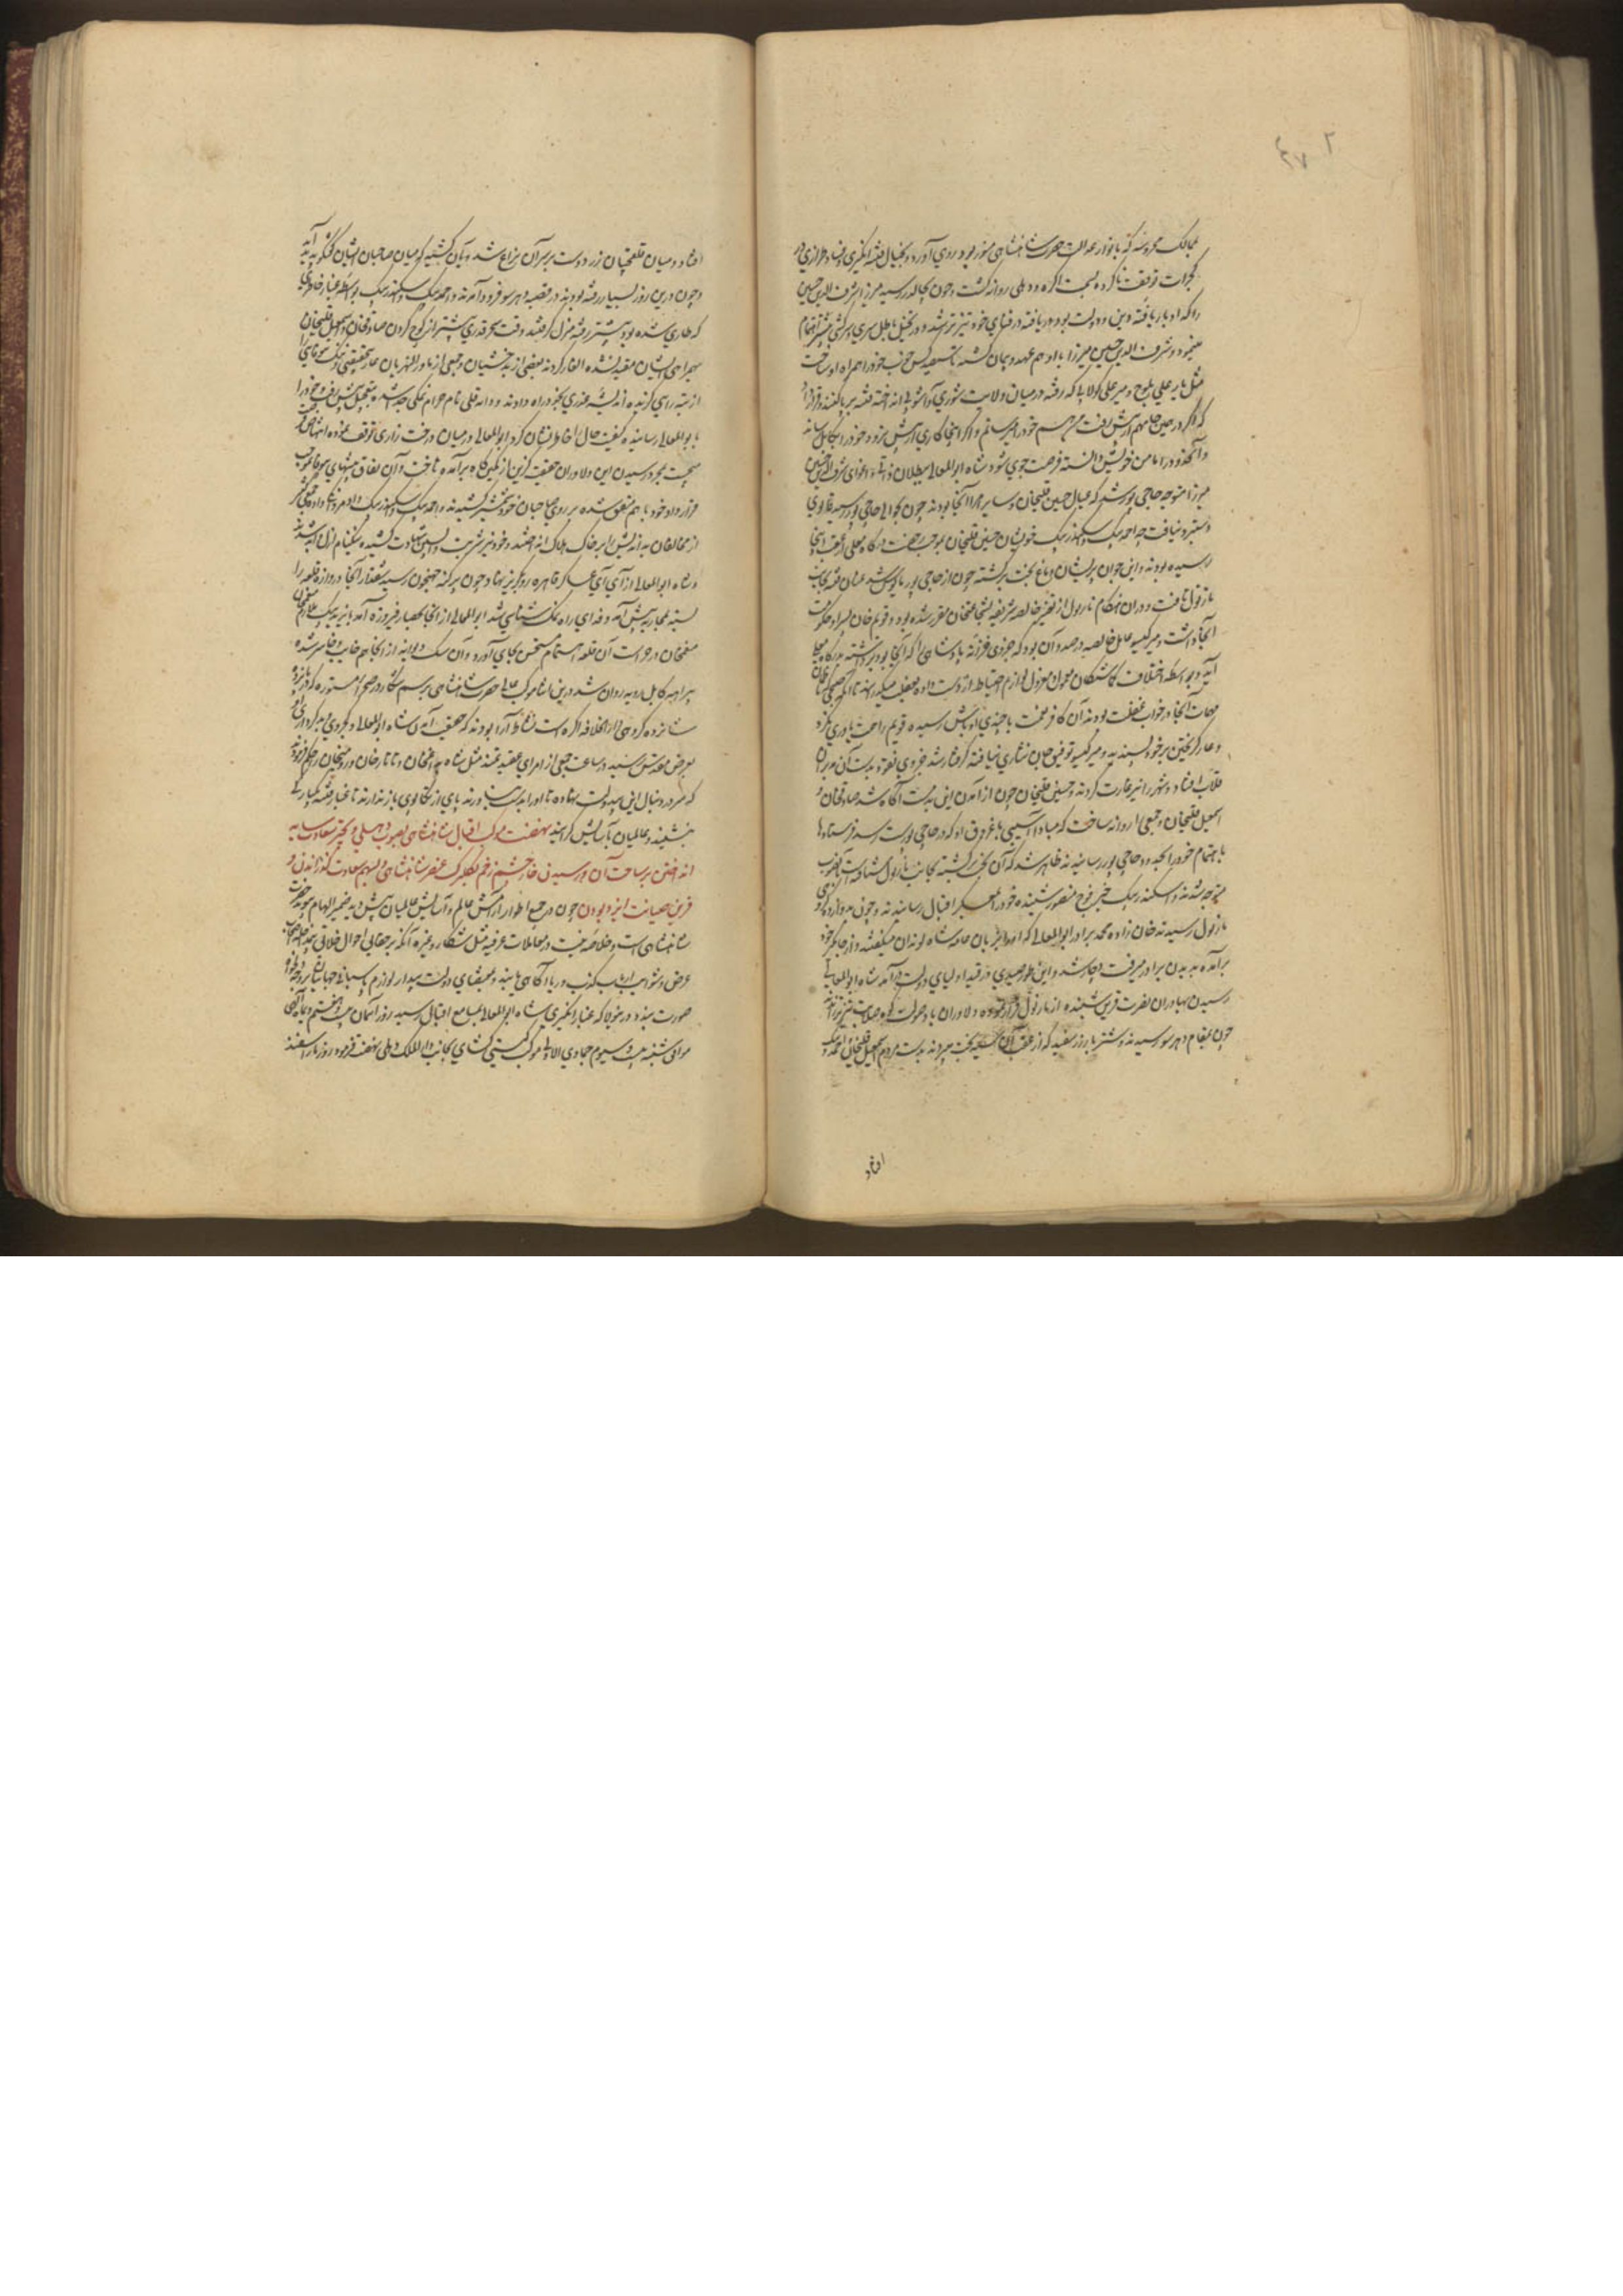 ممالک محروسه که بانوار عدالت حضرت شاهنشاهی منور بود روی آورد و بخیال فتنه انگیزی و فساد طرازی در
کجرات توقف ناکرده بسمت اکره و دهلی روانه کشت و چون بجالور رسید میرزا شرف الدین حسین
را که ادبار یافته دین و دولت بود دریافته در فنای خود تیزتر شد و در تخیل باطل سری و سرکشی
میرزا شرف الدین حسین میرزا با او هم عهد و پیمان کشته تا سیصد کس خوب خود را همراه او ساخت
مثل یار علی بلوج و میر علی کولابی که رفته در میان ولایت شوری و آشوبی انداخته فتنه برپا کنند و قرار داد
که اگر درین مهم از پیش رفت من هم خود را میرسانم و اگر اینجا کاری از پیش نرود خود را بکابل رساند
و آنحدود را مامن خویش دانسته فرصت جوی شود شاه ابوالمعالی ببطلان ذاتی و اغوای شرف الدین حسین
میرزا متوجه حاجی پور شد که عیال حسین قلیخان و سایر امرا آنجا بودند چون بحوالی حاجی پور رسید قابوی
دستبرد نیافت چه احمد بیک و سکندر بیک خویشان حسین قلیخان بموجب رخصت درکاه معلی آنجا
رسیده بودند و این جوان پریشان دماغ بخت برکشته چون از حاجی پور مایوس شد عنان فتنه بجانب
نارنول تافت و در آن هنکام نارنول از تغیر خالصه شریفه بشجاعتخان مقرر شده بود و قویم خان پسر او حکومت
آنجا داشت و میر کیسو عامل خالصه در صدد آن بود که جزوی خزانه پادشاهی را که آنجا بود برداشته بدرکاه معلی
آید و بواسطه اختلاف کماشتکان معمول و معزول لوازم احتیاط از دست داده بغفلت میکذرانیدند تا آنکه صبحی که
مهمات آنجا در خواب غفلت بودند آن کافر نعمت با چندی اوباش رسیده قویم را بخت یاوری نکرد
و عار کریختن بر خود پسندیده و میر کیسو توفیق جان نثاری نیافته کرفتار شد و جزوی نقود بدست آن بد
قلاب افتاد و شهر را نیز غارت کردند و حسین قلیخان چون از آمدن این بدمست آکاه شد صادقخان و
اسمعیل قلیخان و جمعی را روانه ساخت که مبادا آسیبی باغروق او که در حاجی پور است رسد فرستادها
باهتمام خود را بحدود حاجی پور رسانیدند ظاهر شد که آن بخت برکشته بجانب نارنول شتافته است آنصوب
متوجه شدند و اسکندر بیک خبر فوج منصور شنیده خود را بعسکر اقبال رسانیدند و چون بدوازده کروهی
نارنول رسیدند خان زاده محمد برادر ابوالمعالی که او را بزبان عامه شاه لوندان میکفتند و از جایکیر خود
برآمده بدیدن برادر میرفت دچار شد و این طور صیدی در قید اولیای دولت درآمد شاه ابوالمعالی
رسیدن بهادران نصرت قرین شنیده از نارنول فرار نموده و دلاوران با صولت
چون بمقام دهرسو رسیدند دو شتر با رزر سفید که از عقب آن بخت میبردند بدست مردم اسمعیل قلیخان و احمد بیک
افتاد
افتاد و میان قلیخانیان زر دوست بر سر آن نزاع شد و بآن کشید که میان صاحبان ایشان کفتکو بدید آید
و چون درین روز بسیار رفته بودند در قصبه دهرسو فرود آمدند و احمد بیک و اسکندر بیک بواسطه غبار خاطری
که طاری شده بود پیشتر رفته منزل کرفتند وقت سحر قدری پیشتر از کوچ کردن صادقخان و اسمعیل قلیخان
بهمراهی ایشان مقید نشده ایلغار کردند بعضی از بدخشیان و جمعی از ماوراءالنهریان
از بیراهی کرنده اندیشه غدری بخود راه دادند و دانه قلی نام حرام نمکی جدا شده بتعجیل پیش رفته خود را
بابوالمعالی رسانیده کیفیت حال را خاطرنشان کرد ابوالمعالی در میان درخت زاری توقف نموده انتهاض
بجست بمجرد رسیدن این دلاوران حقیقت کزین از کمین کاه برآمده تاخت و آن نفاق پیشهای بیوفا بموجب
قرارداد خود با هم متفق شده بر روی صاحبان خود شمشیر کشیدند و احمد بیک و اسکندر بیک داد مردی داده جمعی کثیر
از مخالفان بداندیش را بر خاک هلاک انداختند و خود نیز شربت واپسین شهادت کشیده نیکنام ازل و ابد شدند
و شاه ابوالمعالی از آی آی عساکر قاهره رو بکریز نهاد و چون برکنه جهنجون رسید شقدار آنجا دروازه قلعه را
بسته بمحاربه پیش آمد و فدای راه نمک شناسی شد ابوالمعالی از آنجا بحصار فیروزه آمد بایزید بیک ملازم منعم خان
منعم خان در حراست آن قلعه اهتمام مستحسن بجای آورد و آن سک دیوانه از آنجا هم خایب و خاسر شده
پیراهه کابل رویه روان شد درین اثنا موکب عالی حضرت شاهنشاهی برسم شکار در صحرای متهوره که در پانزده
شانزده کروهی دارالخلافه اکره است نشاط آرا بودند که حقیقت آمدن شاه ابوالمعالی و کجروی و بدکرداری او
بعرض مقدس رسید در ساعت جمعی از امرای عقیدتمند مثل شاه بداغخان و تاتارخان و رومیخان را حکم فرمودند
که سر در دنبال این بیدولت نهاده تا او را بدست نیاورند پای از تکاپوی باز ندارند تا غبار فتنه یکبارکی
بنشیند و عالمیان بآسایش کرایند نهضت موکب اقبال شاهنشاهی بصوب دهلی و بخیر سعادت سایه
انداختن بر ساحت آن و رسیدن خار چشم زخم بکلبرک عنصر شاهنشاهی و سهم سعادت کذراندن و
قرین صیانت ایزد بودن چون در جمیع اطوار آرامش عالم و آسایش عالمیان پیش دید ضمیر الهام پذیر حضرت
شاهنشاهی است و خلاصه نیت در معاملات عرفیه مثل شکار و غیره آنکه بر حقایق احوال خلایق
عرض و شوایب ارباب کذب و ریا آکاهی یابند و بمقتضای دولت بیدار لوازم پاسبانی جهانیان بر وجه
صورت بندد درینولا که غبار انکیزی شاه ابوالمعالی بمسامع اقبال رسید روز آسمان بیست و هفتم دیماه الهی
موافق شنبه بیست و سیوم جمادی الاولی موکب کیتی کشای بجانب دارالملک دهلی نهضت فرمود روز مار اسفند